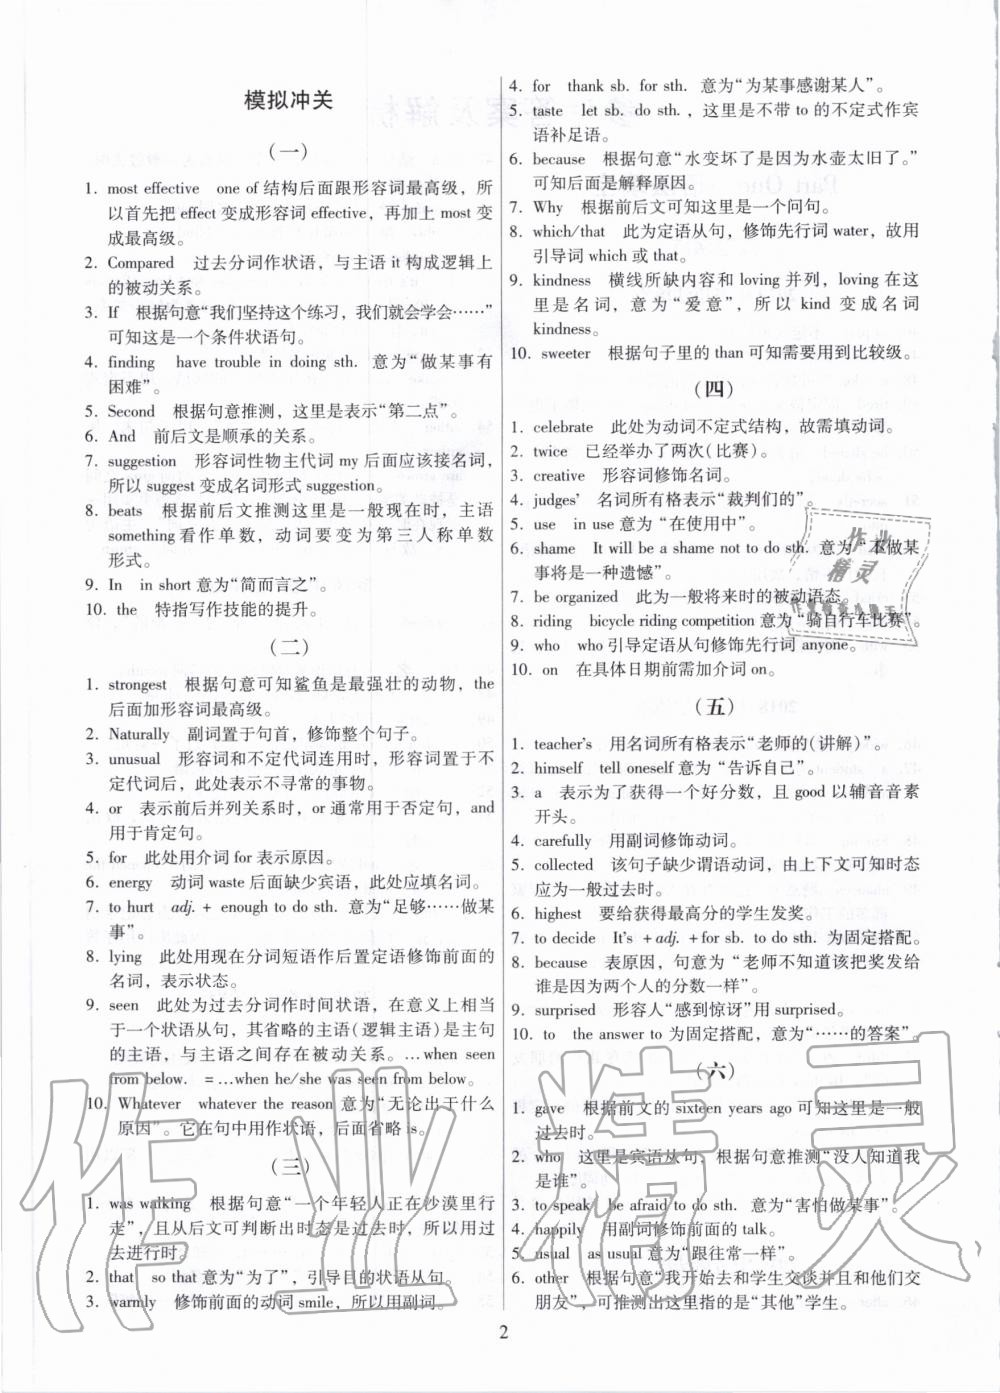 模拟冲关
（一）
1. most effective one of结构后面跟形容词最高级，所
以首先把 effect 变成形容词 effective，再加上 most 变
成最高级。
2. Compared 过去分词作状语，与主语 it 构成逻辑上
的被动关系。
3. If 根据句意“我们坚持这个练习，我们就会学会……”
可知这是一个条件状语句。
4. finding have trouble in doing sth. 意为“做某事有
困难”。
5. Second 根据句意推测，这里是表示“第二点”。
6. And 前后文是顺承的关系。
7. suggestion 形容词性物主代词 my 后面应该接名词，
所以 suggest 变成名词形式 suggestion。
8. beats 根据前后文推测这里是一般现在时，主语
something 看作单数，动词要变为第三人称单数
形式。
9. In in short 意为“简而言之”。
10. the 特指写作技能的提升。
（二）
1. strongest 根据句意可知鲨鱼是最强壮的动物，the
后面加形容词最高级。
2. Naturally 副词置于句首，修饰整个句子。
3. unusual 形容词和不定代词连用时，形容词置于不
定代词后，此处表示不寻常的事物。
4. or 表示前后并列关系时，or 通常用于否定句，and
用于肯定句。
5. for 此处用介词 for 表示原因。
6. energy 动词 waste 后面缺少宾语，此处应填名词。
7. to hurt adj. + enough to do sth. 意为“足够……做某
事”。
8. lying 此处用现在分词短语作后置定语修饰前面的
名词，表示状态。
9. seen 此处为过去分词作时间状语，在意义上相当
于一个状语从句，其省略的主语（逻辑主语）是主句
的主语，与主语之间存在被动关系。…when seen
from below. = …when he/she was seen from below.
10. Whatever whatever the reason 意为“无论出于什么
原因”。它在句中用作状语，后面省略 is。
（三）
1. was walking 根据句意“一个年轻人正在沙漠里行
走”，且从后文可判断出时态是过去时，所以用过
去进行时。
2. that so that 意为“为了”，引导目的状语从句。
3. warmly 修饰前面的动词 smile，所以用副词。
4. for thank sb. for sth. 意为“为某事感谢某人”。
5. taste let sb. do sth.，这里是不带 to 的不定式作宾
语补足语。
6. because 根据句意“水变坏了是因为水壶太旧了。”
可知后面是解释原因。
7. Why 根据前后文可知这里是一个问句。
8. which/that 此为定语从句，修饰先行词 water，故用
引导词 which 或 that。
9. kindness 横线所缺内容和 loving 并列，loving 在这
里是名词，意为“爱意”，所以 kind 变成名词
kindness。
10. sweeter 根据句子里的 than 可知需要用到比较级。
（四）
1. celebrate 此处为动词不定式结构，故需填动词。
2. twice 已经举办了两次（比赛）。
3. creative 形容词修饰名词。
4. judges’ 名词所有格表示“裁判们的”。
5. use in use 意为“在使用中”。
6. shame It will be a shame not to do sth. 意为“不做某
事将是一种遗憾”。
7. be organized 此为一般将来时的被动语态。
8. riding bicycle riding competition 意为“骑自行车比赛”。
9. who who 引导定语从句修饰先行词 anyone。
10. on 在具体日期前需加介词 on。
（五）
1. teacher’s 用名词所有格表示“老师的（讲解）”。
2. himself tell oneself 意为“告诉自己”。
3. a 表示为了获得一个好分数，且 good 以辅音音素
开头。
4. carefully 用副词修饰动词。
5. collected 该句子缺少谓语动词，由上下文可知时态
应为一般过去时。
6. highest 要给获得最高分的学生发奖。
7. to decide It’s + adj. + for sb. to do sth. 为固定搭配。
8. because 表原因，句意为“老师不知道该把奖发给
谁是因为两个人的分数一样”。
9. surprised 形容人“感到惊讶”用 surprised。
10. to the answer to 为固定搭配，意为“……的答案”。
（六）
1. gave 根据前文的 sixteen years ago 可知这里是一般
过去时。
2. who 这里是宾语从句，根据句意推测“没人知道我
是谁”。
3. to speak be afraid to do sth. 意为“害怕做某事”。
4. happily 用副词修饰前面的 talk。
5. usual as usual 意为“跟往常一样”。
6. other 根据句意“我开始去和学生交谈并且和他们交
朋友”，可推测出这里指的是“其他”学生。
2
作业
精灵
作业精灵